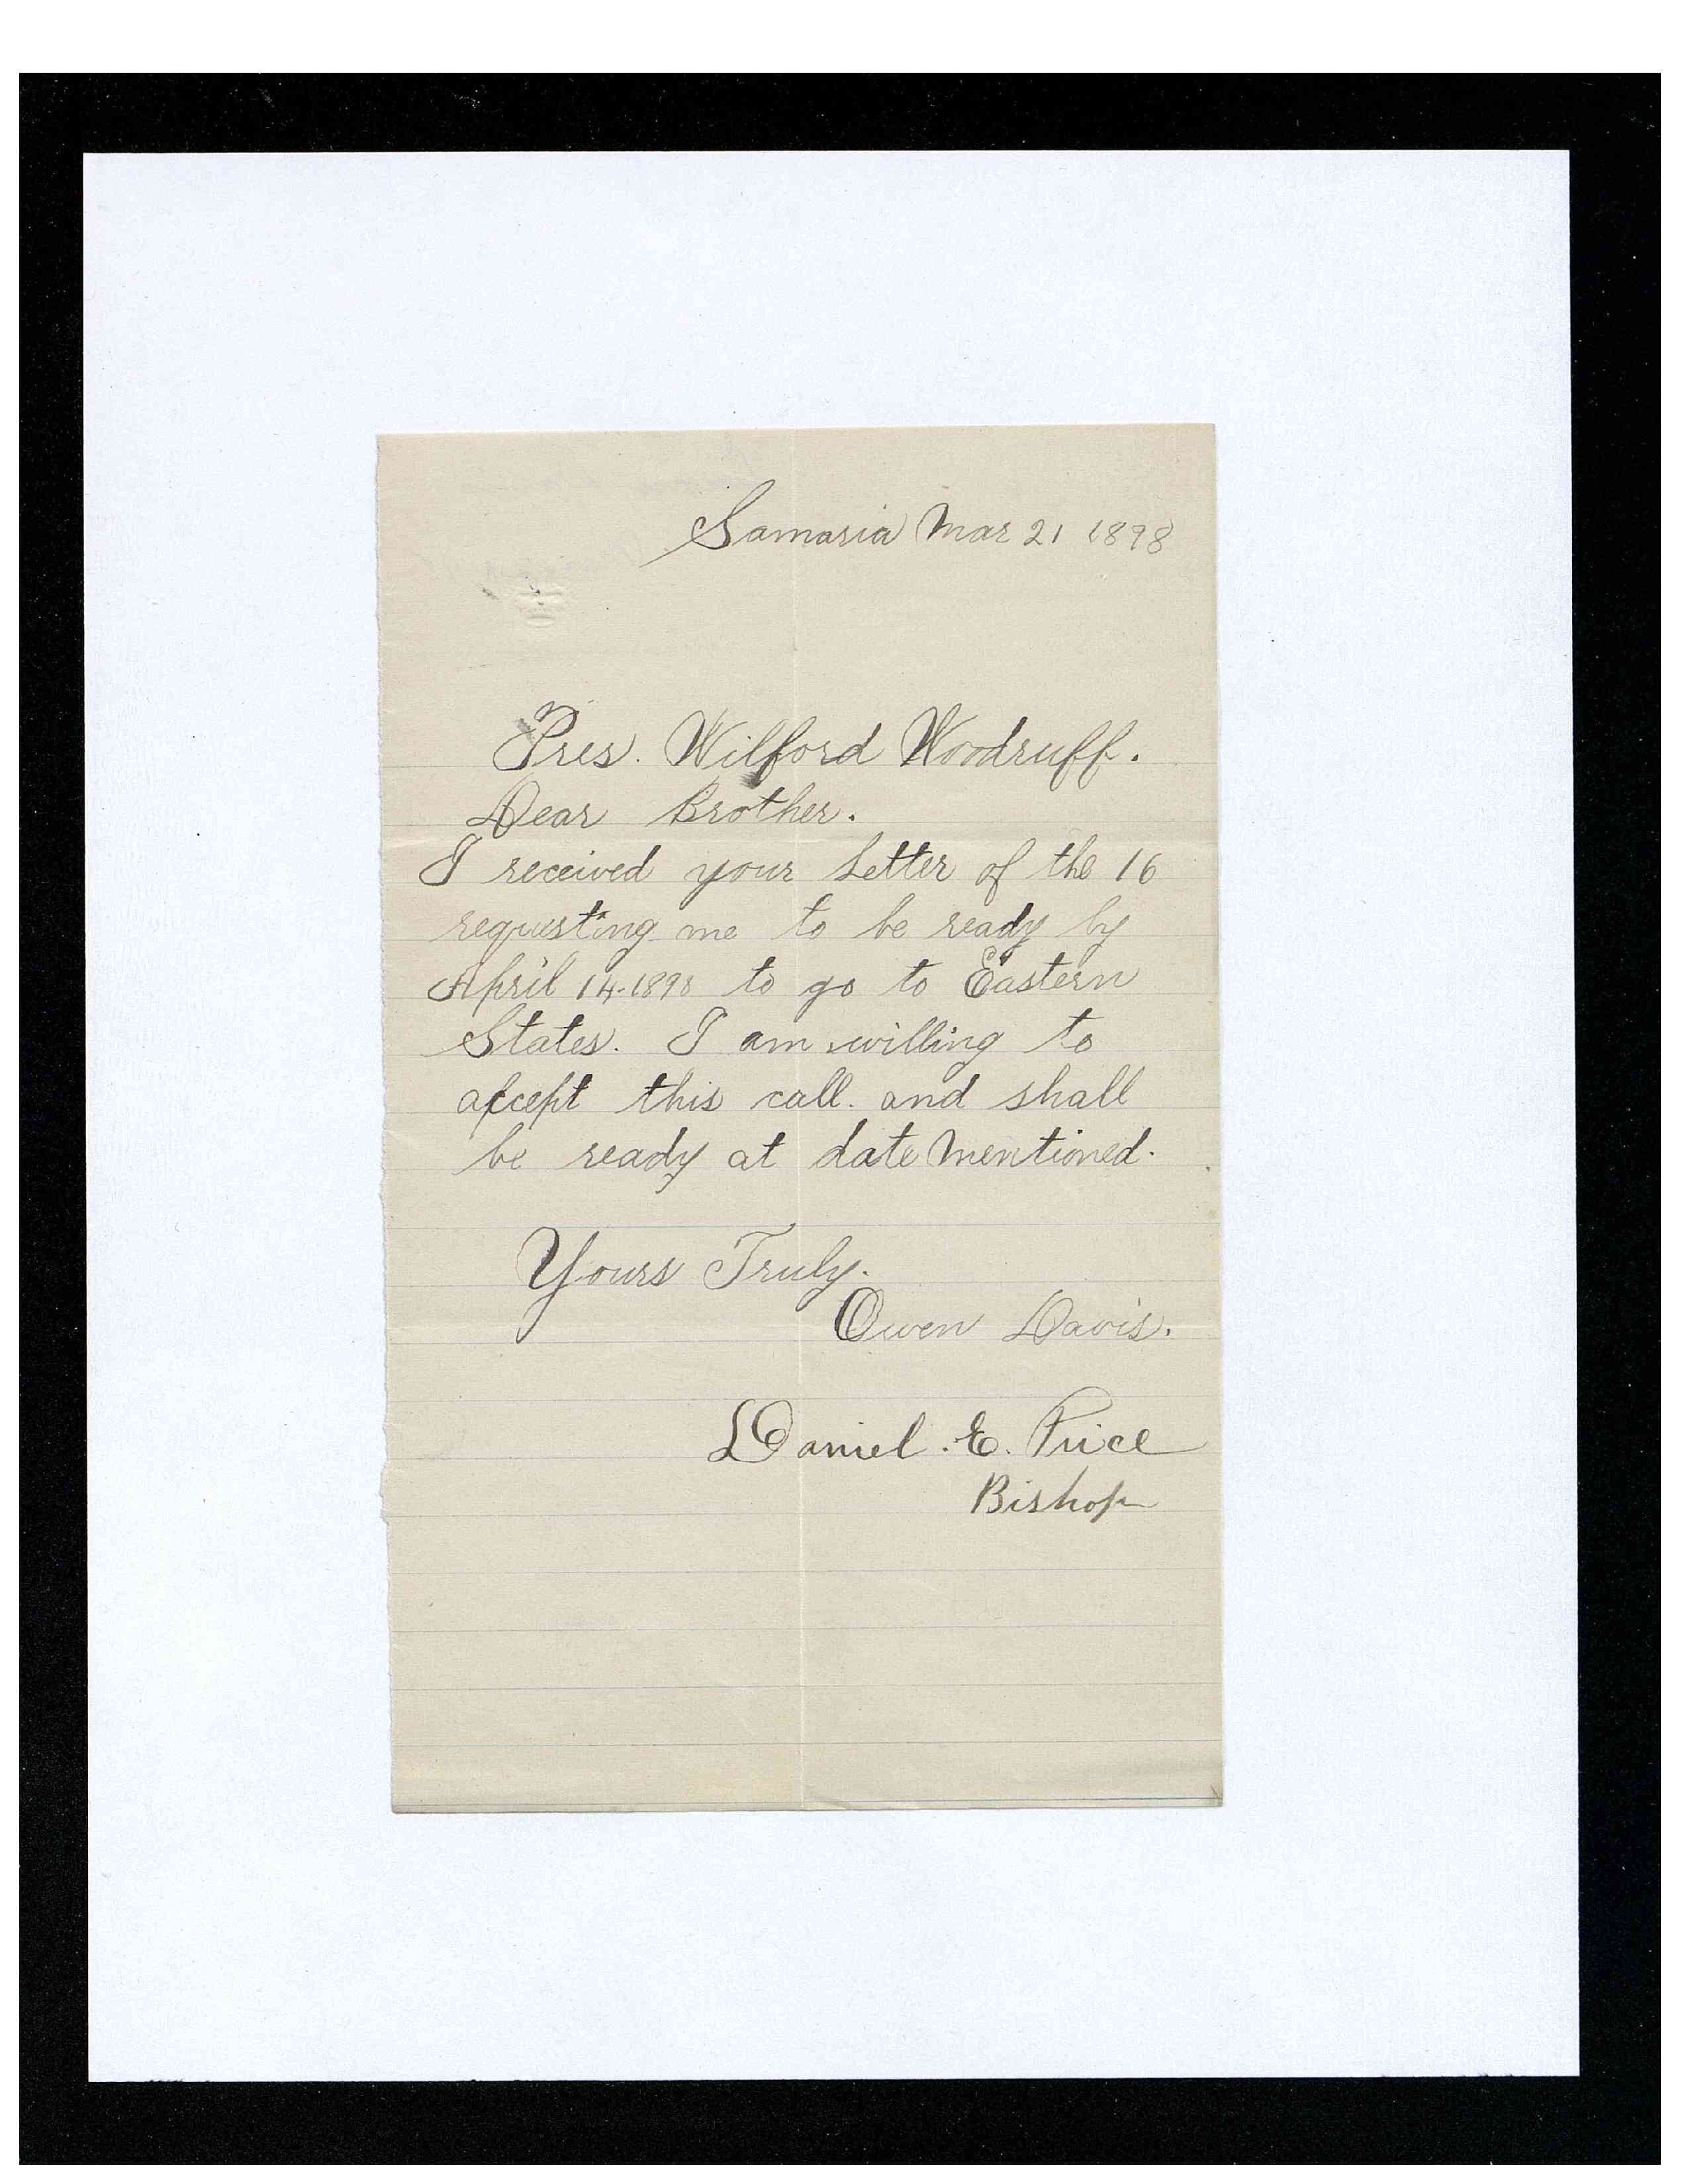 Samaria Mar 21 1898
Pres. Wilford Woodruff.
Dear Brother.
I received your Letter of the 16
requesting me to be ready by
April 14-1898 to go to Eastern
States. I am willing to
accept this call. and shall
be ready at date Mentioned.
Yours Truly.
Owen Davis.
Daniel. E. Price
Bishop